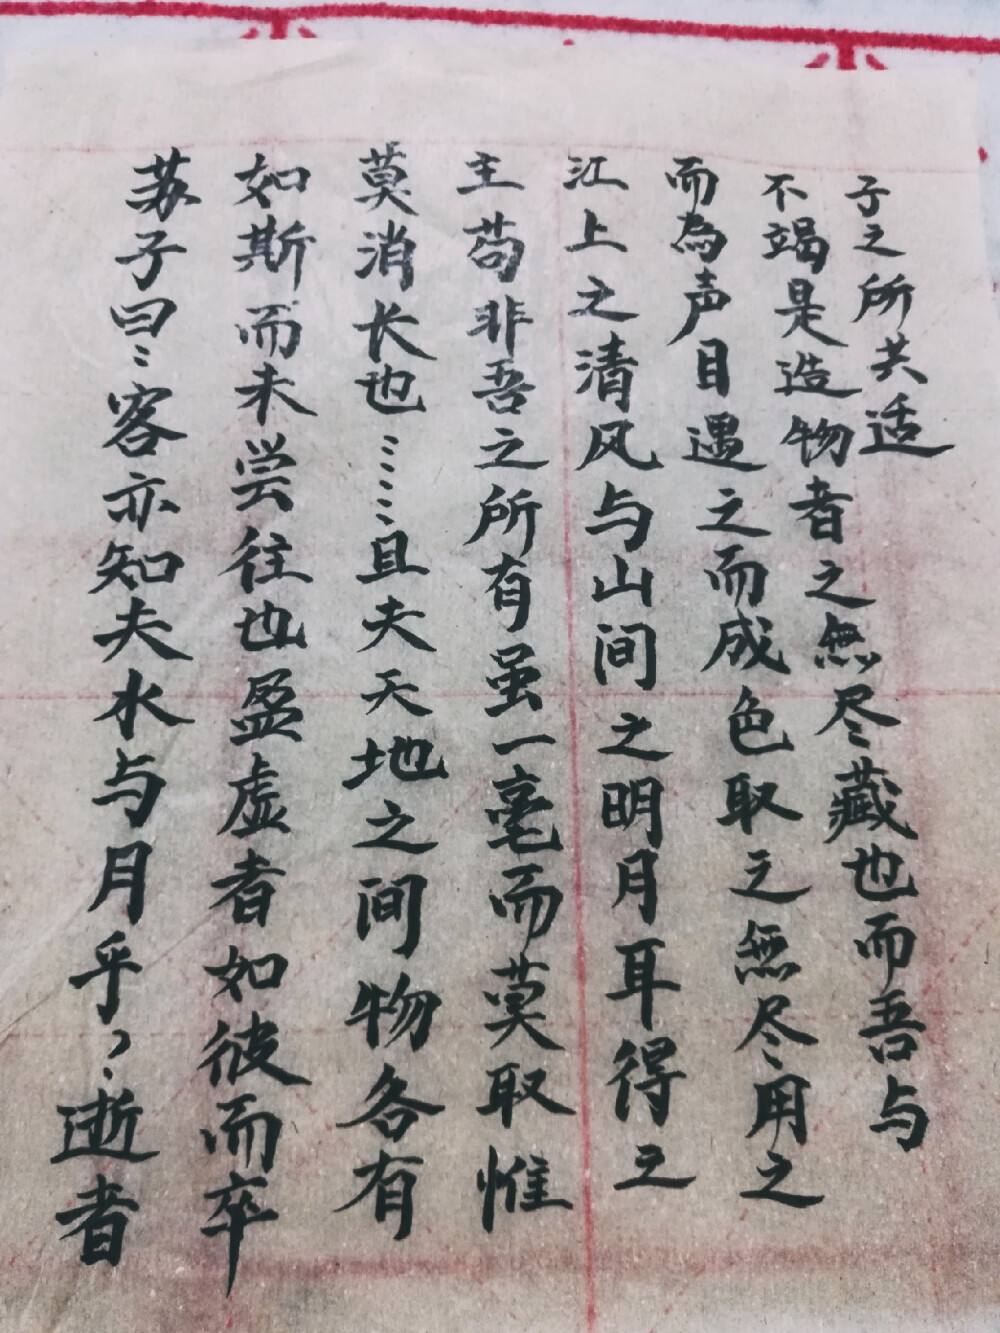 苏子曰：客亦知夫水与月乎？逝者
如斯而未尝往也盈虚者如彼而卒
莫消长也……且夫天地之间物各有
主苟非吾之所有虽一毫而莫取惟
江上之清风与山间之明月耳得之
而為声目遇之而成色取之無尽用之
不竭是造物者之無尽藏也而吾与
子之所共适